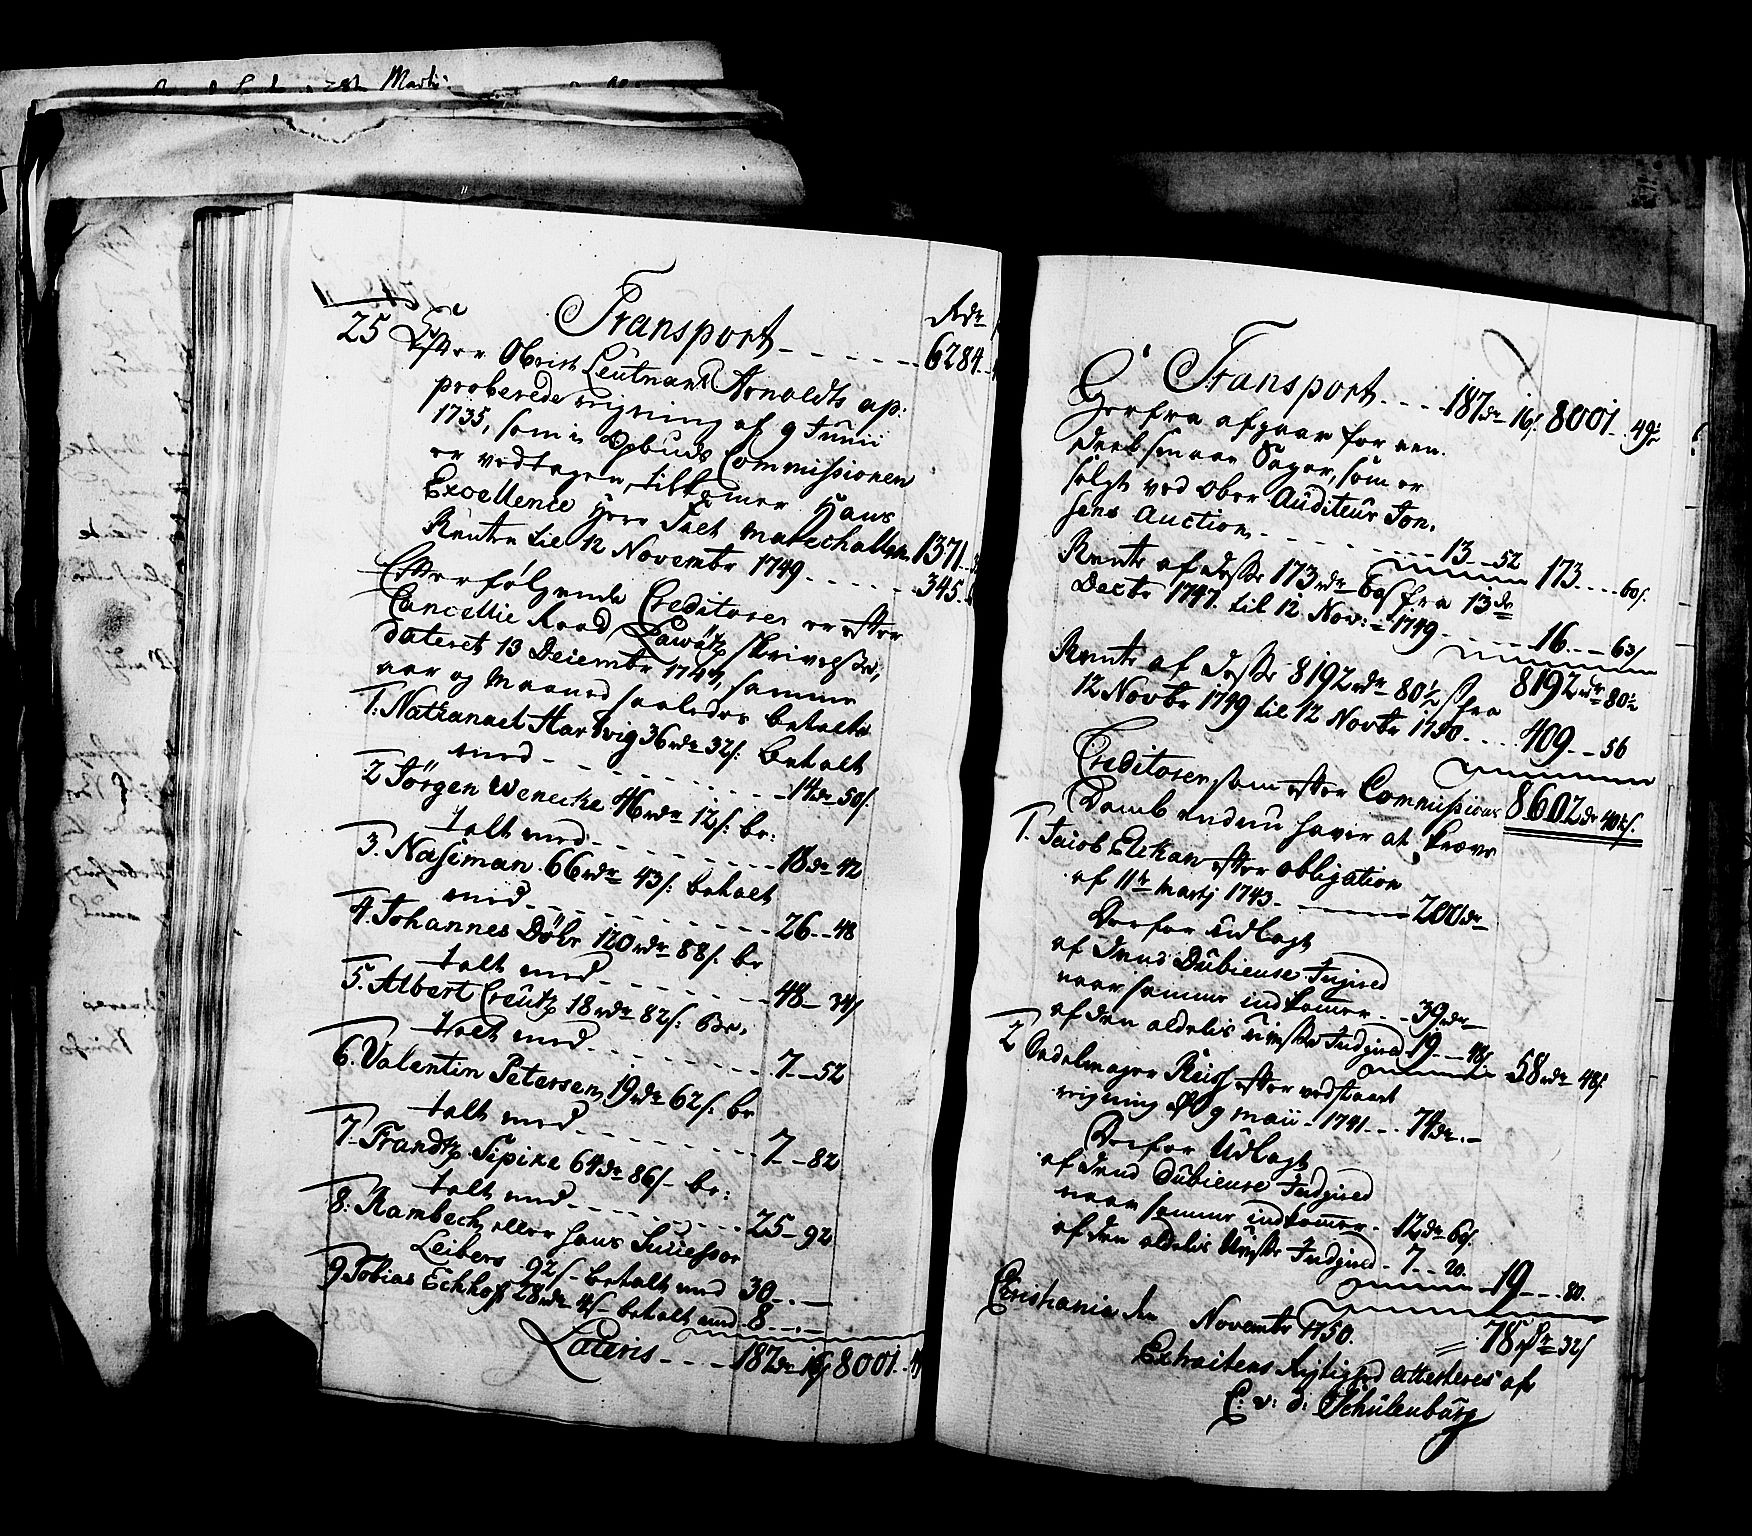 28de Martii
Transport Rdr
6284
25 Efter Obrist Leütnant Arnoldts ap:
proberede reigning af 9 Junii
1735, som i Opbuds Commissionen
er vedtagen, tilkomer Hans
Excellence Herr Felt Marechallen 1371
Rente til 12 Novembr 1749 345
Efterfølgende Creditorer er efter
Cancellie Raad Lawätz skrivelse,
dateret 13 Decembr 1747, samme
aar og Maaned saaledes betalte
1. Nathanael Hartvig 36 rdr 32 s: betalt
med 14 dr 50 s.
2 Jörgen Wenecke 46 rdr 12 s: be:
talt med 18 dr 42
3. Nasiman 66 rdr 43 s: betalt
med 26 48
4. Johannes Döhr 120 rdr 88 s: be
talt med 48 34 s
5. Albert Creütz 18 rdr 82 s: be,
talt med 7 52
6. Valentin Petersen 19 dr 62 s: be
talt med 7 82
7. Frandtz Sipike 64 dr 86 s be:
talt med 25 92
8. Rambech eller hans Successor
Leibers 92 s betalt med 30
9 Tobias Eckhof 28 rdr 4 s betalt med 8
Lateris 187 dr 16 s 8001
Transport 187 dr 16 s. 8001 49½
Herfra afgaar for een
deel smaae Sager, som er
solgt ved Ober Auditeür Jon,
sens Auction 13 52 173 60 s.
Rente af disse 173 rdr 60 s fra 13de
Decbr 1747. til 12 Nov: 1749 16 63 s
8192 rdr 80½
Rente af disse 8192 rdr 80½ s fra
12 Novbr 1749 til 12 Novbr 1750 409 56
8602 dr 40½ s.
Creditorer som efter Commissions
Domb endnu haver at kræve
1. Jacob Elekan efter obligation
af 11te Martj 1743. 200 dr
Derfor Udlagt
af Dend Dübieuse Indgield
naar samme indkommer 39 dr
af den aldelis Uvisse Indgield 19 48 s 58 rdr 48 s.
2 Sadelmager Reisch efter vedstaaet
reigning af 9 Maii 1741 74 dr.
Derfor Udlagt
af dend Dübieuse Indgield
naar samme indkommer. 12 dr 60 s.
af den aldelis Uvisse Indgield 7 20. 19 80.
78 dr 32 s
Christiania den Novembr 1750.
Extractens Rigtighed attesteres af
C: v: d: Schülenbürg